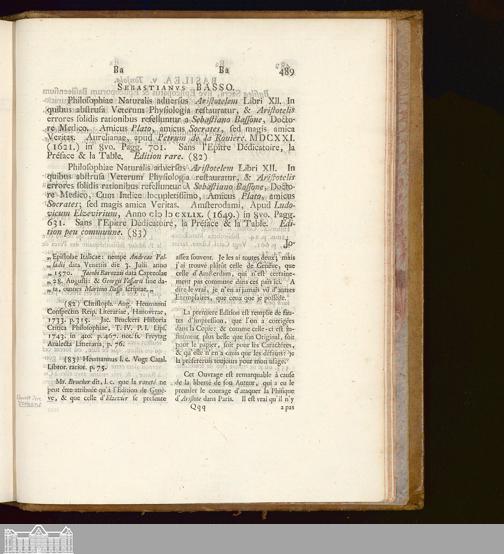 Ba Ba 489
SEBASTIANVS BASSO.
Philosophiae Naturalis adversus Aristotelem Libri XII. In
quibus abstrusa Veterum Physiologia restauratur, & Aristotelis
errores solidis rationibus refelluntur a Sebastiano Bassone, Docto-
re Medico. Amicus Plato, amicus Socrates, sed magis amica
Veritas. Aurelianae, apud Petrum de la Rouiere. MDCXXI.
(1621.) in 8vo. Pagg. 701. Sans l'Epitre Dédicatoire, la
Préface & la Table. Edition rare. (82)
Philosophiae Naturalis adversus Aristotelem Libri XII. In
quibus abstrusa Veterum Physiologia restauratur, & Aristotelis
errores solidis rationibus refelluntur A Sebastiano Bassone, Docto-
re Medico, Cum Indice locupletissimo, Amicus Plato, amicus
Socrates; sed magis amica Veritas. Amsterodami, Apud Ludo-
vicum Elzevirium, Anno cIɔ Iɔ cXLIX. (1649.) in 8vo. Pagg.
631. Sans l'Epitre Dédicatoire, la Préface & la Table. Edi-
tion peu commune. (83)
Jo-
„Epistolae Italicae: nempe Andreae Pal-
„ladii data Venetiis die 3. Julii anno
„1570. Jacobi Barozzii data Caprolae
„28. Augusti: & Georgii Vasarii sine da-
„te, omnes Martino Bassi scriptae.„
(82) Christoph. Aug. Heumanni
Conspectus Reip. Literariae, Hanoverae,
1733. p. 315. Jac. Bruckeri Historia
Critica Philosophiae, T. IV. P. I. Lips.
1743. in 4to. p. 467. not. s. Freytag
Analecta Literaria, p. 76.
(83) Heumannus l. c. Vogt Catal.
Libror. rarior. p. 75.
Mr. Brucker dit, l. c. que la rareté ne
peut être attribuée qu'à l'Edition de Gené-
ve, & que celle d'Elzevier se présente
assez souvent. Je les ai toutes deux; mais
j'ai trouvé plûtôt celle de Genéve, que
celle d'Amsterdam, qui n'est certaine-
ment pas commune dans ces païs ici. A
dire le vrai, je n'en ai jamais vû d'autres
Exemplaires, que ceux que je possède.
La premiere Edition est remplie de fau-
tes d'impression, que l'on a corrigées
dans la Copie; & comme celle-ci est in-
finiment plus belle que son Original, soit
pour le papier, soit pour les Caractères,
& qu'elle n'en a aucun des défauts: je
la préfererois toujours pour mon usage.
Cet Ouvrage est remarquable à cause
de la liberté de son Auteur, qui a eu le
premier le courage d'ataquer la Phisique
d'Aristote dans Paris. Il est vrai qu'il n'y
Qqq a pas